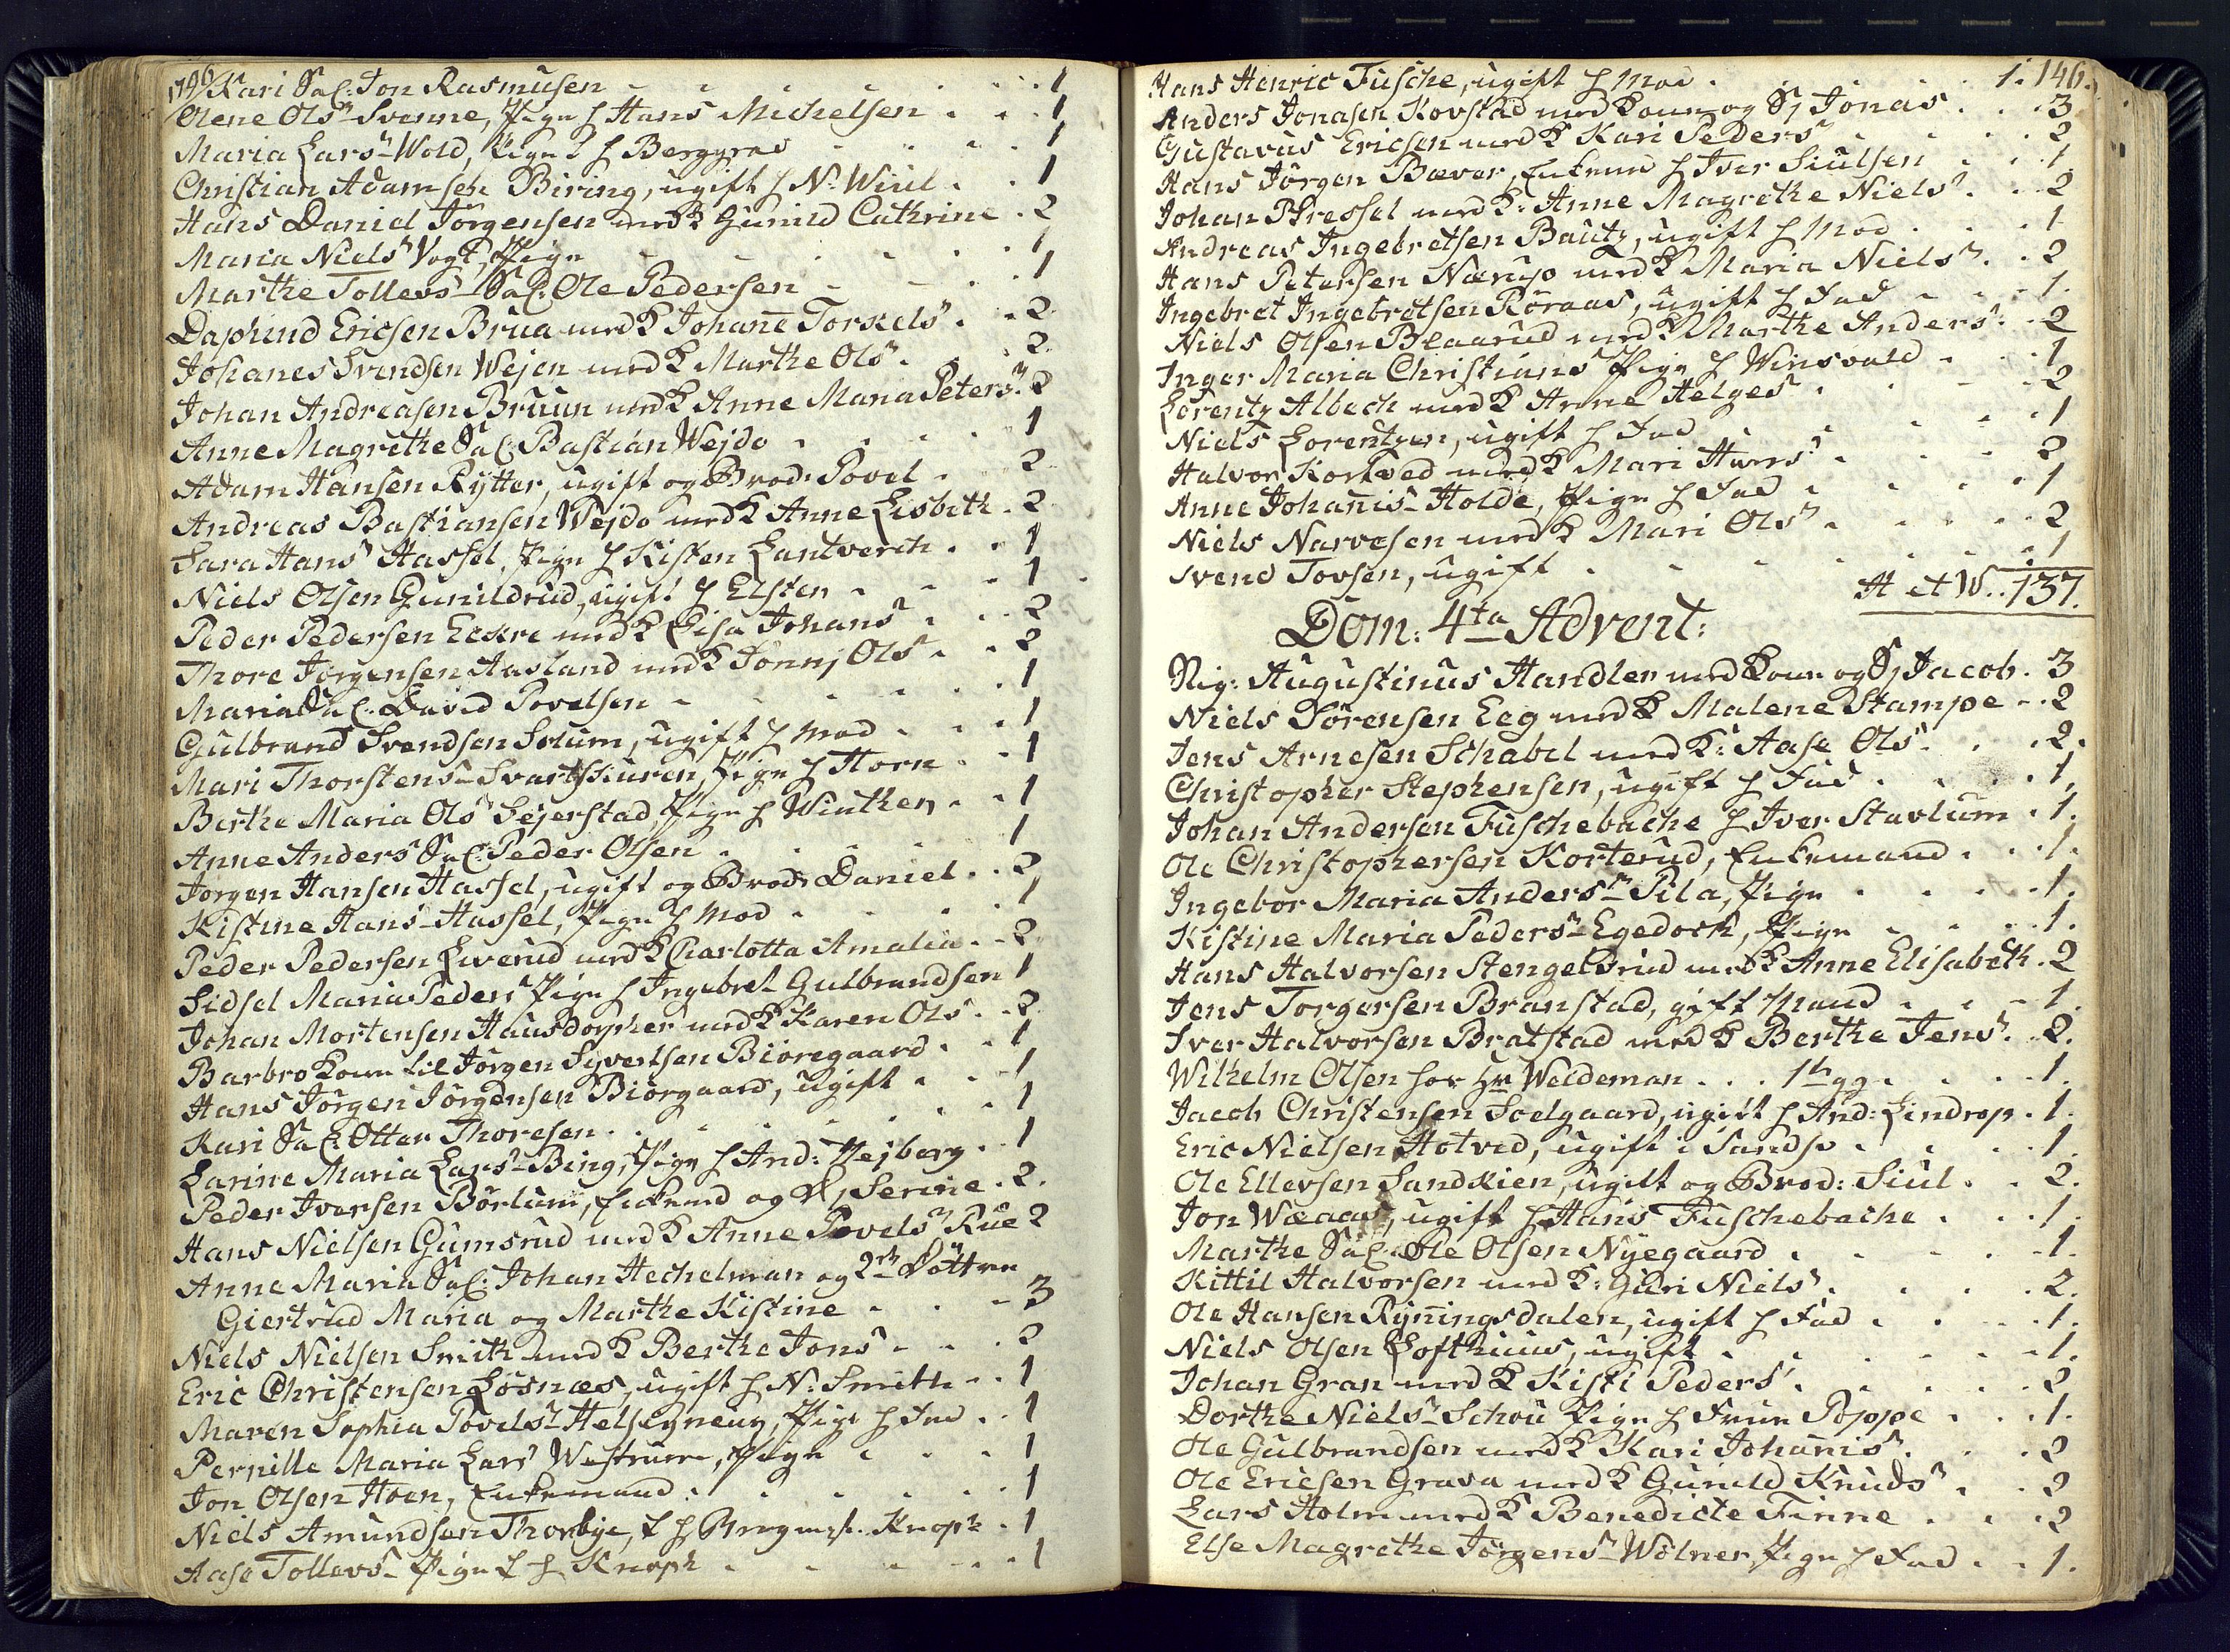 1796 Kari Sal: Jon Rasmusen 1
Olene Ols: Svenne, Pige h Hans Michelsen 1
Maria Lars: Wold, Pige t h Berggrav 1
Christian Adamsen Biring, ugift h N: Wiul 1
Hans Daniel Jörgensen med K Gunild Cathrine 2
Maria Niels: Vogt, Pige 1
Marthe Tollevs: Sal: Ole Pedersen 1
Daphind Ericsen Brua med K Johane Torkels: 2
Johanes Svendsen Wejen med K Marthe Ols: 2
Johan Andreasen Bruun med K Anne Maria Peters: 2
Anne Magrethe Sal: Bastian Wejdo 1
Adam Hansen Rytter, ugift og Brod: Povel 2
Andreas Bastiansen Wejdo med K Anne Lisbeth 2
Sara Hans: Hassel, Pige h Kisten Lantverch 1
Niels Olsen Gunildrud, ugift h Elsten 1
Peder Pedersen Eckre med K Lisa Johans: 2
Thore Jörgensen Aasland med K Jönnj Ols: 2
Maria Sal: David Povelsen 1
Gulbrand Svendsen Solum, ugift h Mod 1
Mari Thorstens: Svartskuren, Pige h Horn 1
Berthe Maria Ols: Sejerstad, Pige h Winther 1
Anne Anders: Sal: Peder Olsen 1
Jörgen Hansen Hassel, ugift og Brod: Daniel 2
Kistine Hans: Hassel, Pige h Mod 1
Peder Pedersen Liverud med K Charlotta Amalia 2
Sidsel Maria Peders: Pige h Ingebret Gulbrandsen 1
Johan Mortensen Hausdorpher med K Karen Ols: 2
Barbro Kone til Jörgen Syvertsen Biöregaard 1
Hans Jörgen Jörgensen Biörgaard, ugift 1
Kari Sal: Otter Thoresen 1
Larine Maria Lars: Bing, Pige h And: Vejberg 1
Peder Iversen Börlum, Enkemd og D, Serine 2.
Hans Nielsen Gumsrud med K Anne Povels: Rue 2
Anne Maria Sal: Johan Hechelman og 2de Döttre
Giertrud Maria og Marthe Kistine 3
Niels Nielsen Smith med K Berthe Jons: 2
Eric Christensen Lösnæs, ugift h N: Smith 1
Maren Sophia Povels: Helseyneug, Pige h Fad 1
Pernille Maria Lars: Westrum, Pige 1
Jon Olsen Hoen, Enkemand 1
Niels Amundsen Thorbye, t h Bergm: Knoph 1
Aase Tollevs: Pige t h Knoph 1
Hans Henric Fusche, ugift h Mod 1. 146.
Anders Jonasen Kovstad med Kone og S, Jonas 3
Gustavus Ericsen med K Kari Peders: 2
Hans Jörgen Bæver, Enkemd h Iver Siulsen 1
Johan Pressel med K: Anne Magrethe Niels: 2
Andreas Ingebretsen Bautz, ugift h Mod 1
Hans Petersen Nærup med K Maria Niels: 2
Ingebret Ingebretsen Röraas, ugift h Fad 1.
Niels Olsen Blaarud med K Marthe Anders: 2
Inger Maria Christians: Pige h Winsvold 1
Lorentz Albech med K Anne Helges: 2
Niels Lorentzen, ugift h Fad 1
Halvor Kortved med K Mari Hans: 2
Anne Johanis: Holde, Pige h Fad 1
Niels Narvesen med K Mari Ols: 2
Svend Tovsen, ugift 1
H et W. 137.
Dom: 4ta Advent:
Sig: Augustinus Handler med Kone og S, Jacob. 3
Niels Sörensen Eeg med K Malene Stampe 2
Jens Arnesen Schabel med K: Aase Ols: 2.
Christopher Stephensen, ugift h Fad 1.
Johan Andersen Fuschebache h Iver Stavlum 1.
Ole Christophersen Korterud, Enkemand 1.
Ingebor Maria Anders: Pila, Pige 1.
Kistine Maria Peders: Egedock, Pige 1.
Hans Halvorsen Stengelsrud med K Anne Elisabeth. 2
Jens Torgersen Branstad, gift Mand 1.
Iver Halvorsen Bratstad med K Berthe Jens: 2.
Wilhelm Olsen hos Hr Weldeman 1te gg 1.
Jacob Christensen Soelgaard, ugift h And: Lindrop. 1.
Eric Nielsen Hotved, ugift i Sandsv 1.
Ole Ellevsen Sandkien, ugift og Brod: Siul 2.
Jon Wæaas, ugift h Hans Fuschebache 1.
Marthe Sal: Ole Olsen Nyegaard 1.
Kittil Halvorsen med K: Guri Niels: 2.
Ole Hansen Ryningsdalen, ugift h Fad 1.
Niels Olsen Lofthuus, ugift 1.
Johan Gran med K Kisti Peders: 2
Dorthe Niels: Schou Pige h Frue Poppe 1.
Ole Gulbrandsen med K Kari Johanis: 2
Ole Ericsen Grava med K Gunild Knuds: 2
Lars Holm med K Benedicte Finne 2
Else Magrethe Jörgens: Wölner, Pige h Fad 1.